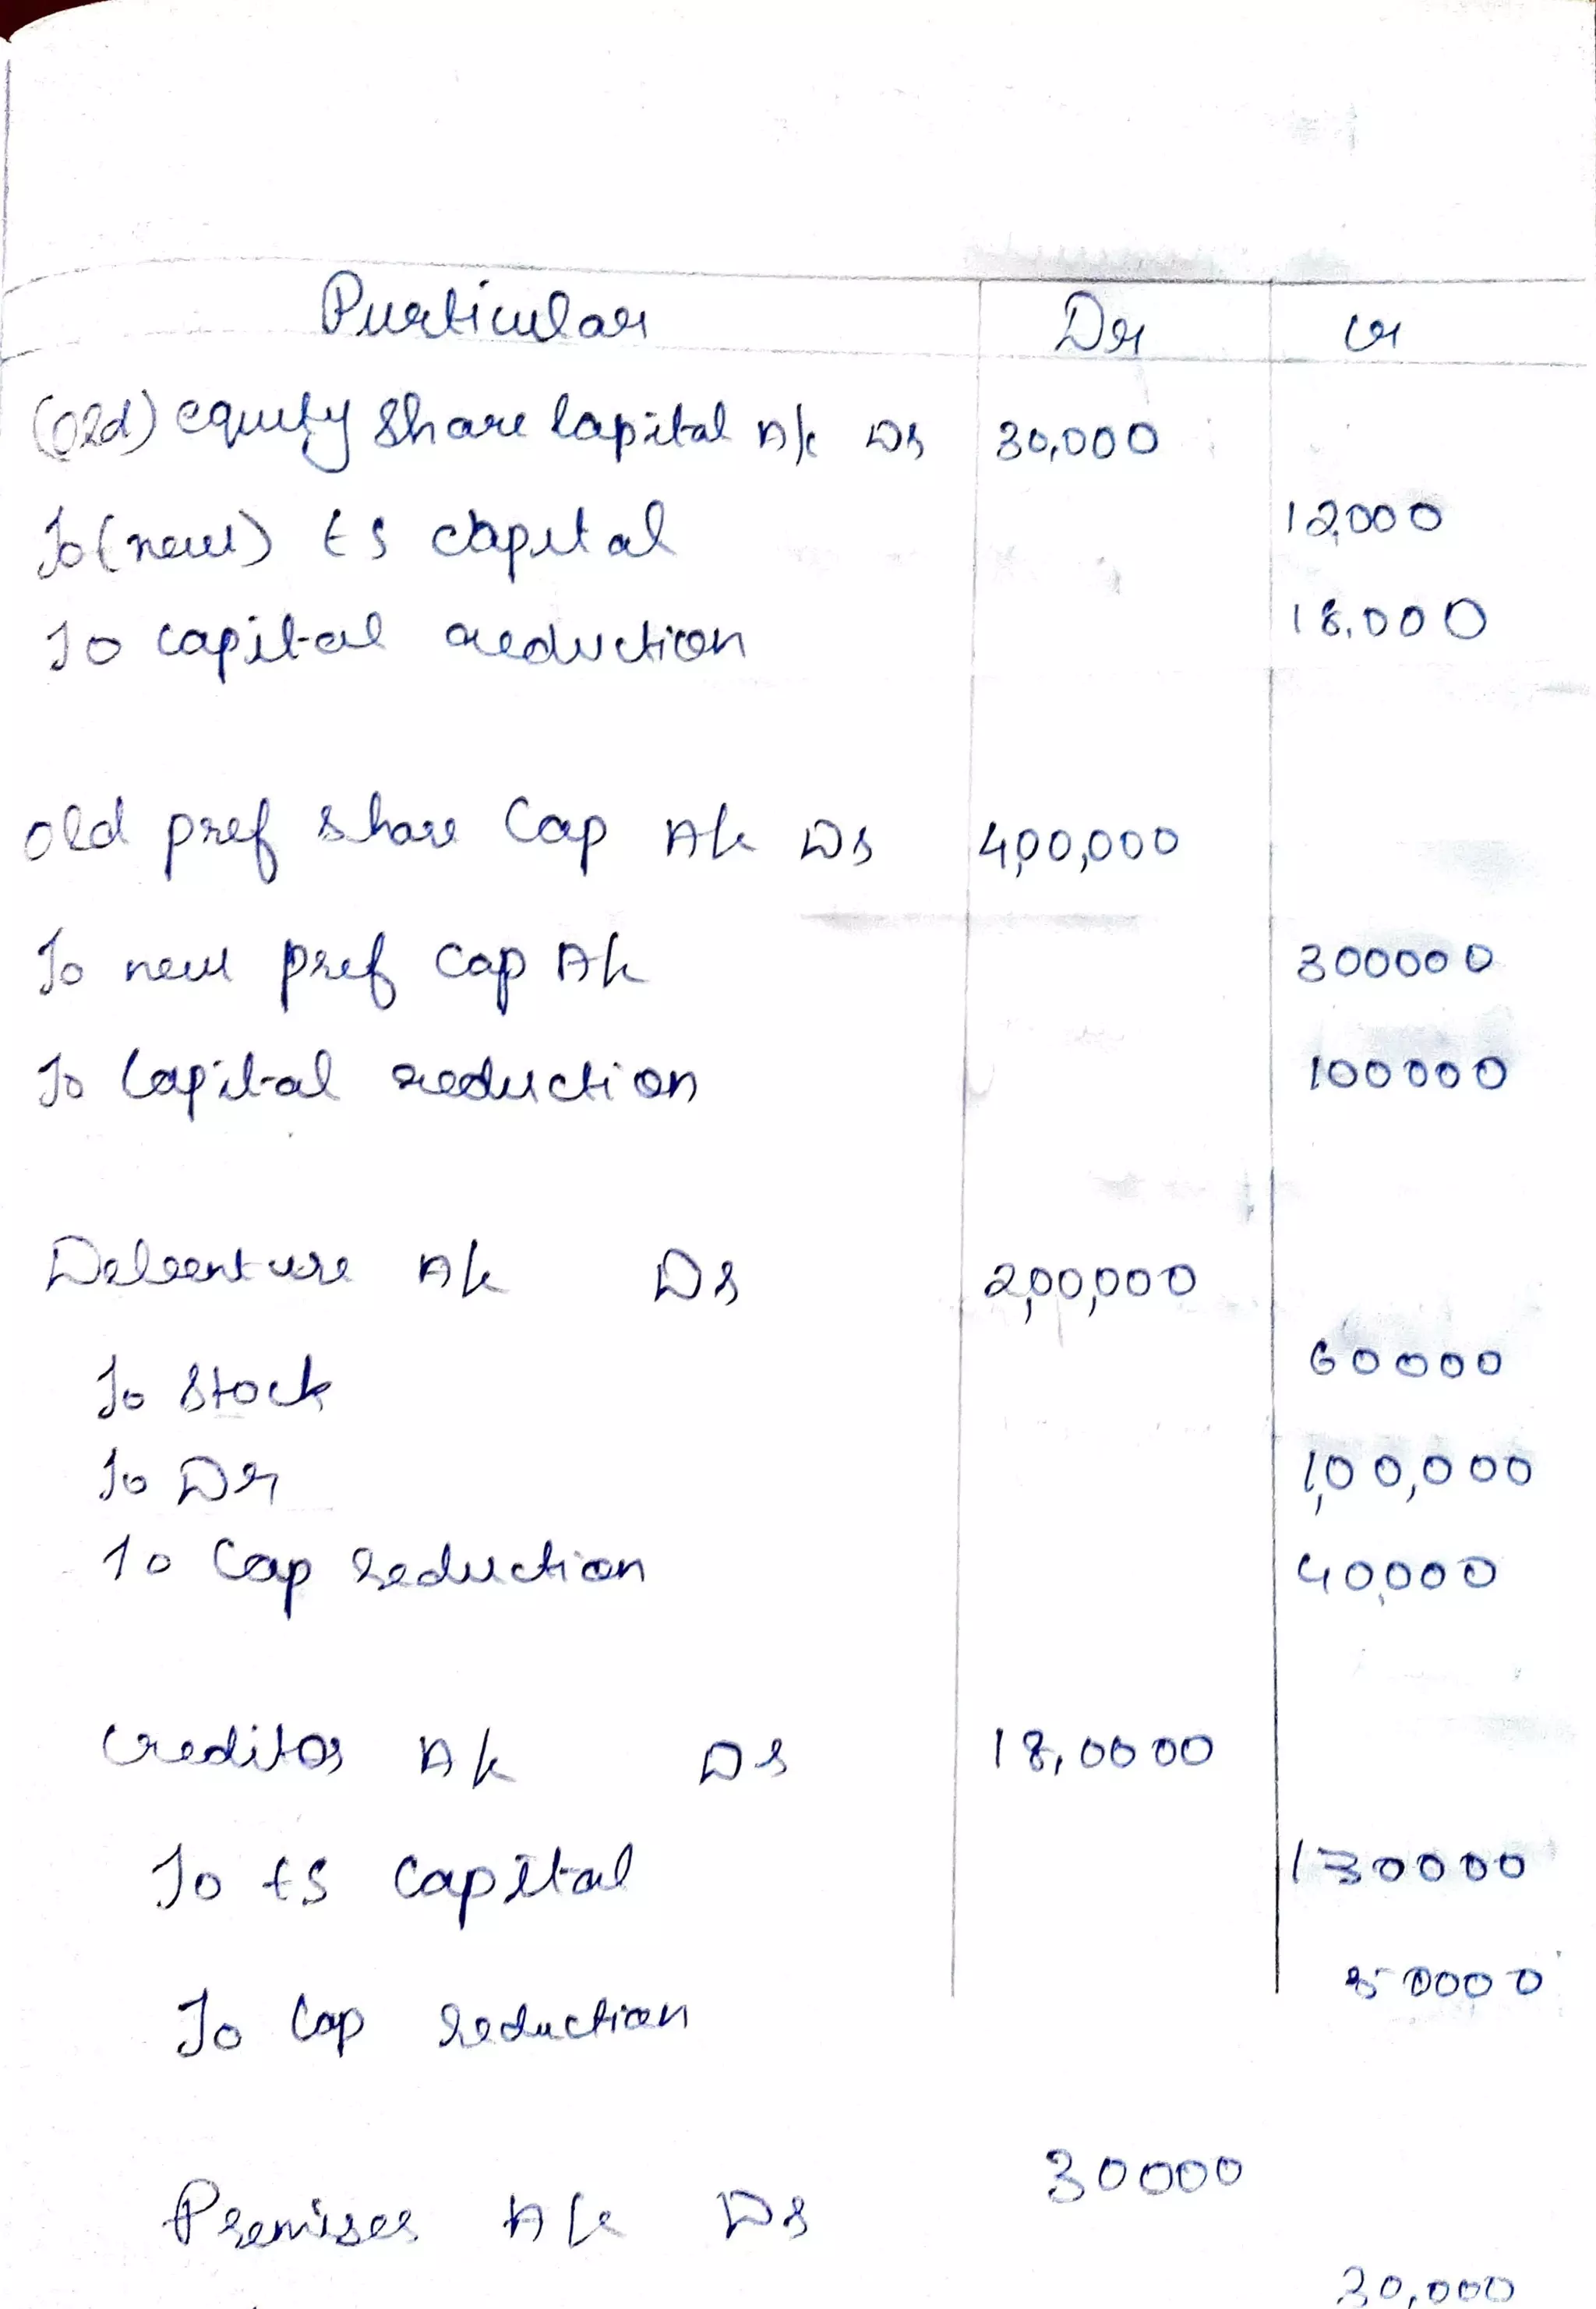 Particular Dr Cr
(Old) equity share Capital A/c Dr 30,000
To (new) ES Capital 12,000
To capital reduction 18,000
Old pref share Cap A/c Dr 4,00,000
To new pref Cap A/c 300000
To Capital reduction 100000
Debenture A/c Dr 2,00,000
To Stock 60000
To Dr 1,00,000
To Cap reduction 40,000
Creditor A/c Dr 18,0000
To ES Capital 130000
To Cap reduction 50000
Premises A/c Dr 30000
30,000